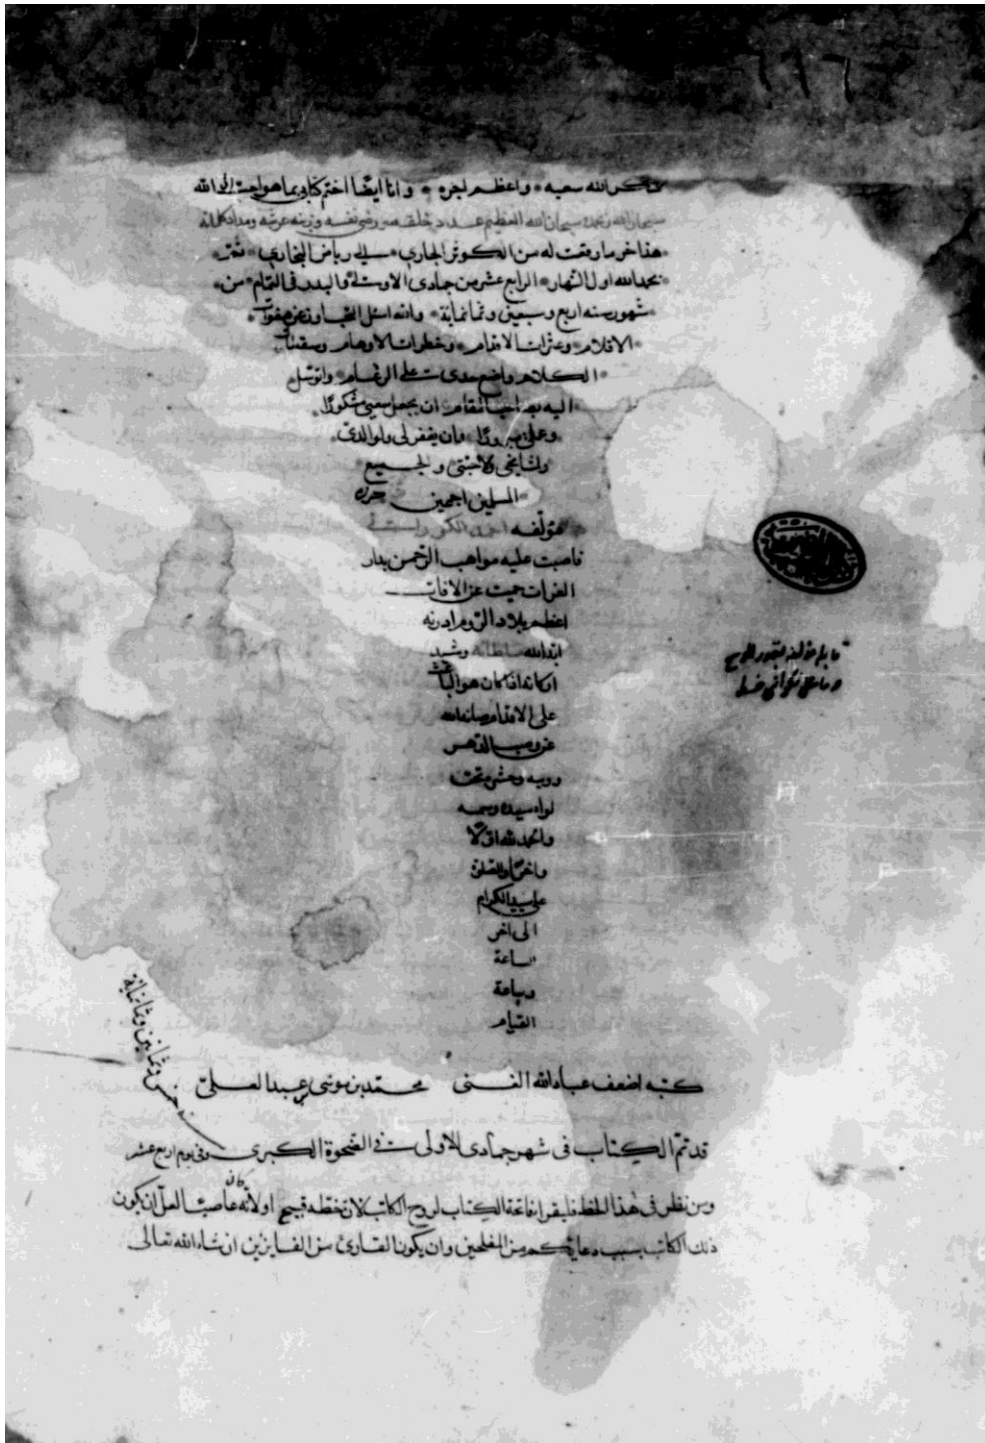 شكر الله سعيه واعظم اجره وانا ايضا اختم كتابي بما هو احب الى الله
سبحان الله وبحمده سبحان الله العظيم عدد خلقه ورضى نفسه وزنة عرشه ومداد كلماته
هذا اخر ما وفقت له من الكوثر الجاري الى رياض البخاري تم
بحمد الله اول النهار الرابع عشر من جمادى الاولى والبدر في التمام من
شهور سنه اربع وسبعين وثمانماية وانه اسئل التجاوز عن هفوات
الاقلام وعثرات الاقدام وخطرات الاوهام وسقطات
الكلام واضع خدي على الرغام واتوسل
اليه ان يجعل سعيي مشكورا
وعملي مبرورا وان يغفر لي ولوالدي
ولمشايخي ولاحبتي ولجميع
المسلمين اجمعين حرره
مؤلفه احمد الكوراني
فاضت عليه مواهب الرحمن بدار
الغزات حميت عن الافات
اعظم بلاد الروم ادرنه
ايد الله سلطانه وشيد
اركانه اذ كان هو الباعث
على الاقدام صانه الله
عن نوب الدهر
وريبه وحشره تحت
لواء سيده
والحمد لله اولا
واخرا والصلوة
على سيد الكرام
الى اخر
ساعة
وساعة
القيام
كتبه اضعف عباد الله الغنى محمد بن موسى بن عبد العلى
قد تم الكتاب فى شهر جمادى الاولى فى الضحوة الكبرى وفى يوم اربع عشر
سنه خمس وثمانين وثمانماية
ومن نظر فى هذا الخط فليقرا فاتحة الكتاب لروح الكاتب لان خطه قبيح او لانه كان عاصيا لعل ان يكون
ذلك الكاتب بسبب دعائكم من المفلحين وان يكون القارئ من الفايزين ان شاء الله تعالى